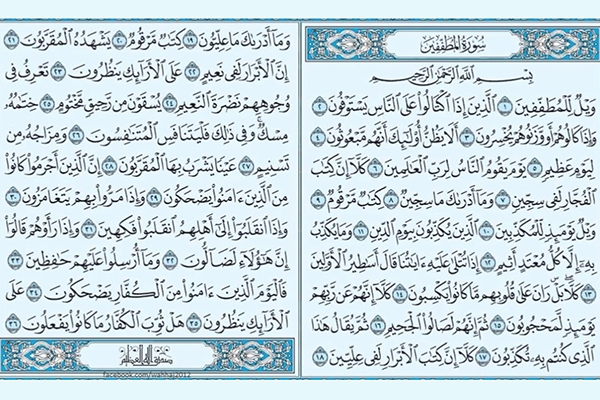 سُورَةُ المُطَفِّفِينَ
بِسْمِ اللَّهِ الرَّحْمَٰنِ الرَّحِيمِ
وَيْلٌ لِّلْمُطَفِّفِينَ ١ الَّذِينَ إِذَا اكْتَالُوا عَلَى النَّاسِ يَسْتَوْفُونَ ٢
وَإِذَا كَالُوهُمْ أَو وَّزَنُوهُمْ يُخْسِرُونَ ٣ أَلَا يَظُنُّ أُولَٰئِكَ أَنَّهُم مَّبْعُوثُونَ ٤
لِيَوْمٍ عَظِيمٍ ٥ يَوْمَ يَقُومُ النَّاسُ لِرَبِّ الْعَالَمِينَ ٦ كَلَّا إِنَّ كِتَابَ
الْفُجَّارِ لَفِي سِجِّينٍ ٧ وَمَا أَدْرَاكَ مَا سِجِّينٌ ٨ كِتَابٌ مَّرْقُومٌ ٩
وَيْلٌ يَوْمَئِذٍ لِّلْمُكَذِّبِينَ ١٠ الَّذِينَ يُكَذِّبُونَ بِيَوْمِ الدِّينِ ١١ وَمَا يُكَذِّبُ
بِهِ إِلَّا كُلُّ مُعْتَدٍ أَثِيمٍ ١٢ إِذَا تُتْلَىٰ عَلَيْهِ آيَاتُنَا قَالَ أَسَاطِيرُ الْأَوَّلِينَ
١٣ كَلَّا بَلْ رَانَ عَلَىٰ قُلُوبِهِم مَّا كَانُوا يَكْسِبُونَ ١٤ كَلَّا إِنَّهُمْ عَن رَّبِّهِمْ
يَوْمَئِذٍ لَّمَحْجُوبُونَ ١٥ ثُمَّ إِنَّهُمْ لَصَالُو الْجَحِيمِ ١٦ ثُمَّ يُقَالُ هَٰذَا
الَّذِي كُنتُم بِهِ تُكَذِّبُونَ ١٧ كَلَّا إِنَّ كِتَابَ الْأَبْرَارِ لَفِي عِلِّيِّينَ ١٨
وَمَا أَدْرَاكَ مَا عِلِّيُّونَ ١٩ كِتَابٌ مَّرْقُومٌ ٢٠ يَشْهَدُهُ الْمُقَرَّبُونَ ٢١
إِنَّ الْأَبْرَارَ لَفِي نَعِيمٍ ٢٢ عَلَى الْأَرَائِكِ يَنظُرُونَ ٢٣ تَعْرِفُ فِي
وُجُوهِهِمْ نَضْرَةَ النَّعِيمِ ٢٤ يُسْقَوْنَ مِن رَّحِيقٍ مَّخْتُومٍ ٢٥ خِتَامُهُ
مِسْكٌ وَفِي ذَٰلِكَ فَلْيَتَنَافَسِ الْمُتَنَافِسُونَ ٢٦ وَمِزَاجُهُ مِن
تَسْنِيمٍ ٢٧ عَيْنًا يَشْرَبُ بِهَا الْمُقَرَّبُونَ ٢٨ إِنَّ الَّذِينَ أَجْرَمُوا كَانُوا
مِنَ الَّذِينَ آمَنُوا يَضْحَكُونَ ٢٩ وَإِذَا مَرُّوا بِهِمْ يَتَغَامَزُونَ ٣٠
وَإِذَا انقَلَبُوا إِلَىٰ أَهْلِهِمُ انقَلَبُوا فَكِهِينَ ٣١ وَإِذَا رَأَوْهُمْ قَالُوا
إِنَّ هَٰؤُلَاءِ لَضَالُّونَ ٣٢ وَمَا أُرْسِلُوا عَلَيْهِمْ حَافِظِينَ ٣٣
فَالْيَوْمَ الَّذِينَ آمَنُوا مِنَ الْكُفَّارِ يَضْحَكُونَ ٣٤ عَلَى
الْأَرَائِكِ يَنظُرُونَ ٣٥ هَلْ ثُوِّبَ الْكُفَّارُ مَا كَانُوا يَفْعَلُونَ ٣٦
صدق الله العظيم
facebook.com/wahhaj2012